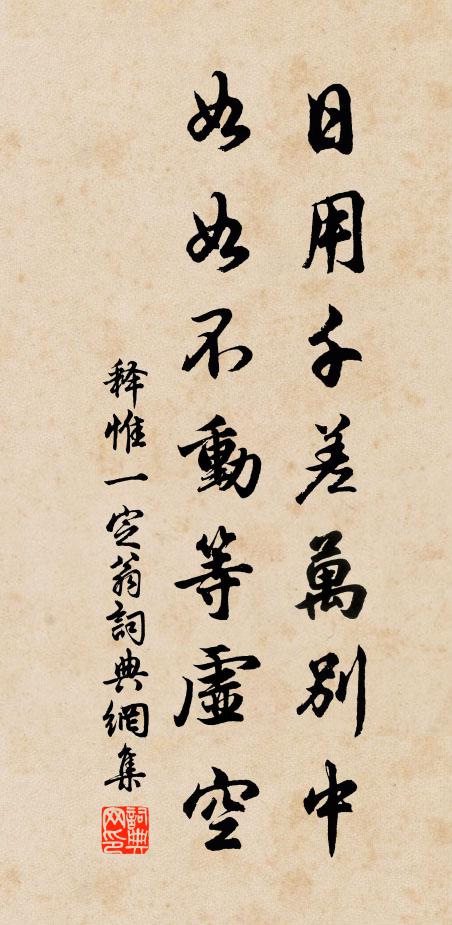 日用千差萬別中
如如不動等虛空
释惟一定翁詞典網集
詞典網印